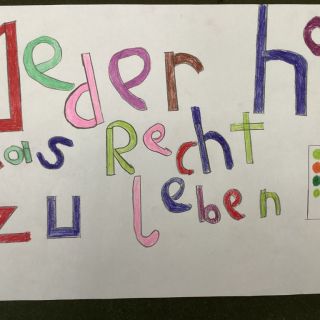 Jeder
das Recht
zu leben